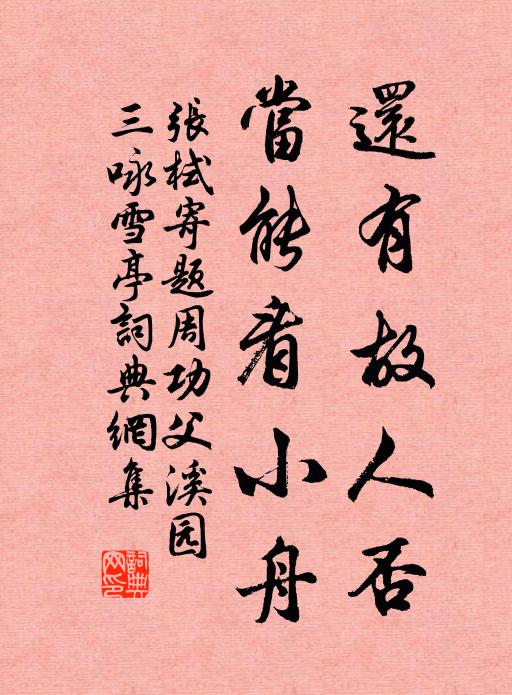 還有故人否
當能看小舟
張栻寄题周功父溪园
三咏雪亭詞典網集
詞典網印